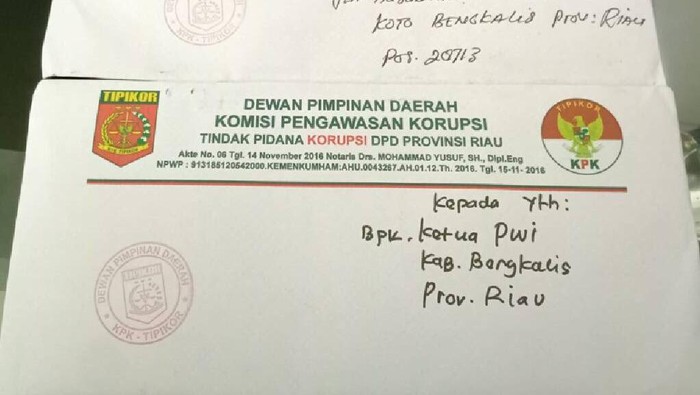 KOTO BENGKALIS Prov: RIAU
Pos. 28713
TIPIKOR
DEWAN PIMPINAN DAERAH
KOMISI PENGAWASAN KORUPSI
TINDAK PIDANA KORUPSI DPD PROVINSI RIAU
Akte No. 06 Tgl. 14 November 2016 Notaris Drs. MOHAMMAD YUSUF, SH., Dipl.Eng
NPWP : 913185120542000.KEMENKUMHAM:AHU.0043267.AH.01.12.Th. 2016. Tgl. 15-11- 2016
TIPIKOR
KPK
Kepada Yth:
BPK. Ketua PWI
Kab. Bengkalis
Prov. Riau
DEWAN PIMPINAN DAERAH
TIPIKOR
KPK - TIPIKOR